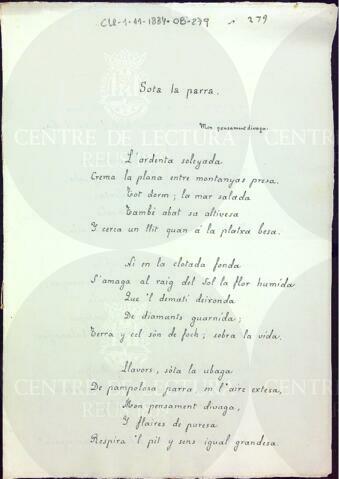 CLR-1-11-1884-OB-279
279
Sota la parra.
Mon pensament divaga.
L'ardenta soleyada
Crema la plana entre montanyas presa.
Tot dorm; la mar salada
També abat sa altivesa
Y cerca un llit quan á la platxa besa.
Ni en la clotada fonda
S'amaga al raig del Sol la flor humida
Que 'l demati deixonda
De diamants guarnida;
Terra y cel són de foch; sobra la vida.
Llavors, sòta la ubaga
De pampolosa parra, en l'aire extesa,
Mon pensament divaga,
Y flaires de puresa
Respira 'l pit y sens igual grandesa.
CENTRE DE LECTURA
REUS
CENTRE DE LECTURA
REUS